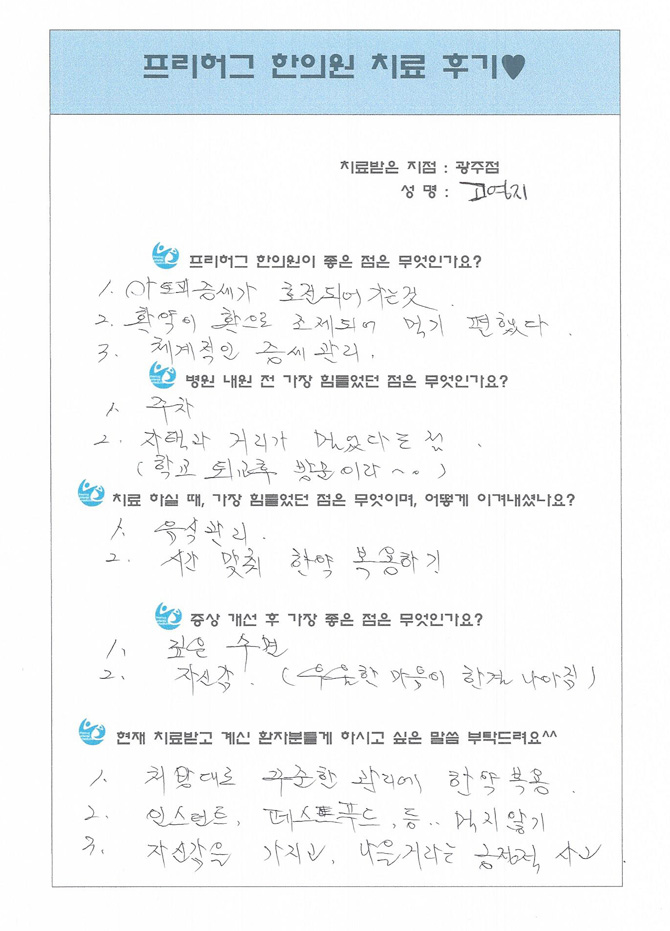 프리허그 한의원 치료 후기♥
치료받은 지점 : 광주점
성 명 : 고영지
프리허그 한의원이 좋은 점은 무엇인가요?
1. 아토피증세가 호전되어 가는것.
2. 환약이 환으로 조제되어 먹기 편했다.
3. 체계적인 증세 관리.
병원 내원 전 가장 힘들었던 점은 무엇인가요?
1. 주차
2. 자택과 거리가 멀었다는 점.
(학교 퇴교후 방문이라~..)
치료 하실 때, 가장 힘들었던 점은 무엇이며, 어떻게 이겨내셨나요?
1. 음식관리.
2. 시간 맞춰 한약 복용하기
증상 개선 후 가장 좋은 점은 무엇인가요?
1. 깊은 수면
2. 자신감. (우울한 마음이 한결 나아짐)
현재 치료받고 계신 환자분들게 하시고 싶은 말씀 부탁드려요^^
1. 처방대로 꾸준한 관리에 한약복용.
2. 인스턴트, 페스트푸드, 등.. 먹지 않기
3. 자신감을 가지고, 나을거라는 긍정적 사고.